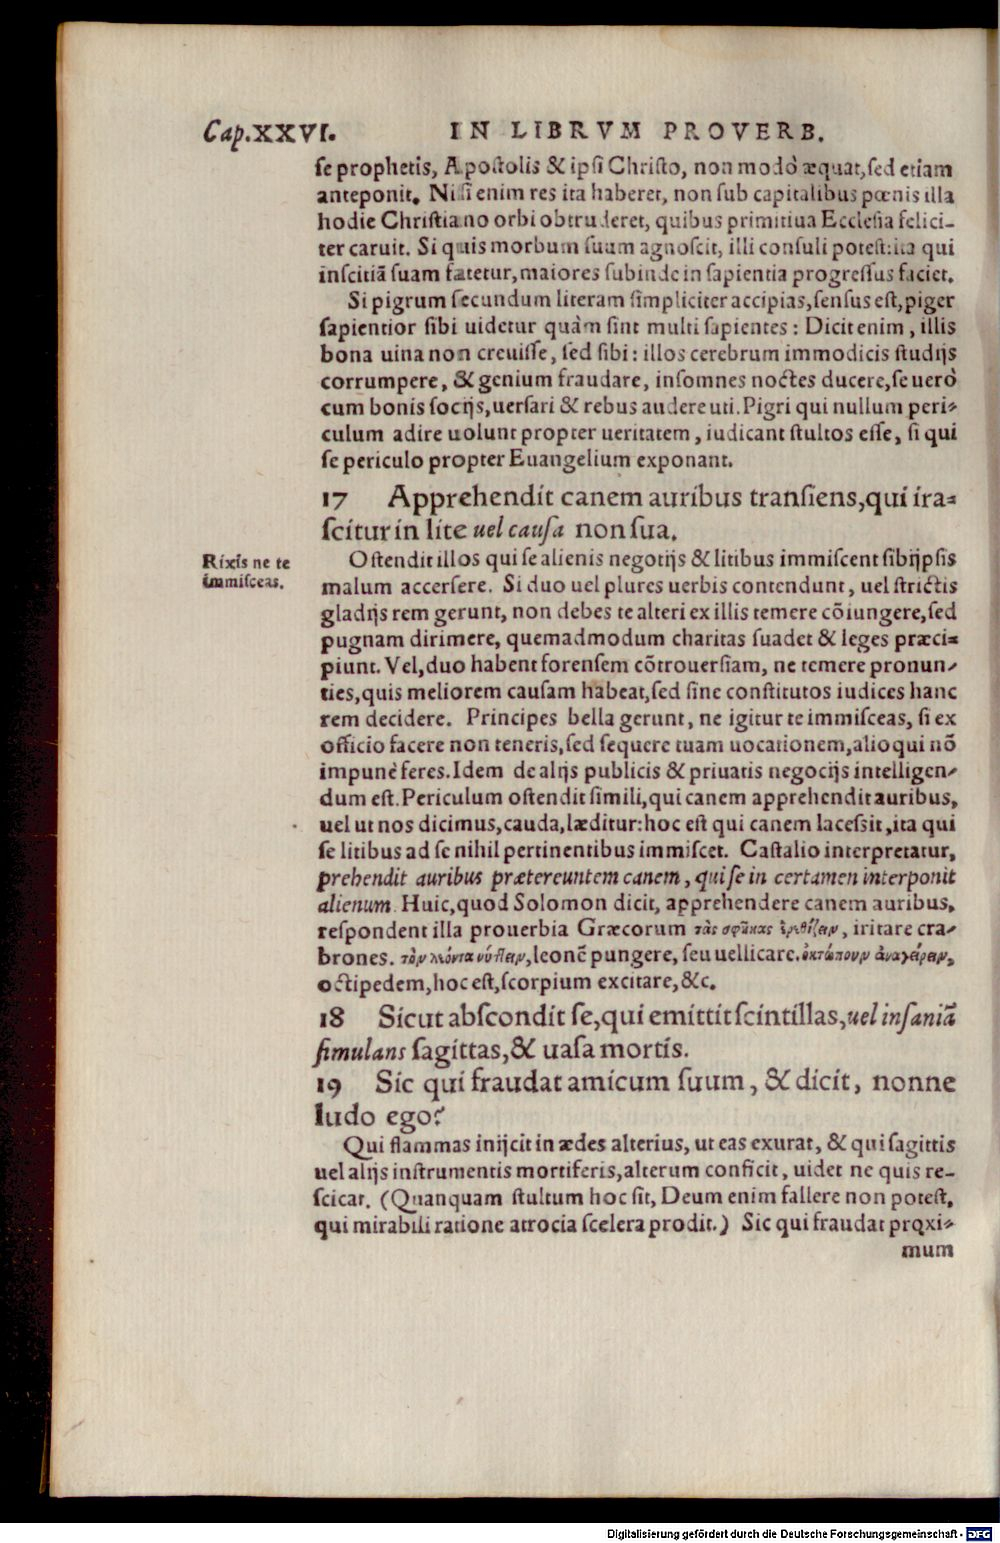 Cap.XXVI. IN LIBRVM PROVERB.
se prophetis, Apostolis & ipsi Christo, non modò æquat, sed etiam
anteponit. Nisi enim res ita haberet, non sub capitalibus pœnis illa
hodie Christiano orbi obtruderet, quibus primitiua Ecclesia felici-
ter caruit. Si quis morbum suum agnoscit, illi consuli potest: ita qui
inscitiã suam fatetur, maiores subinde in sapientia progressus faciet.
Si pigrum secundum literam simpliciter accipias, sensus est, piger
sapientior sibi uidetur quàm sint multi sapientes: Dicit enim, illis
bona uina non creuisse, sed sibi: illos cerebrum immodicis studijs
corrumpere, & genium fraudare, insomnes noctes ducere, se uerò
cum bonis socijs, uersari & rebus audere uti. Pigri qui nullum peri-
culum adire uolunt propter ueritatem, iudicant stultos esse, si qui
se periculo propter Euangelium exponant.
17 Apprehendit canem auribus transiens, qui ira-
scitur in lite uel causa non sua.
Rixis ne te
immisceas.
Ostendit illos qui se alienis negotijs & litibus immiscent sibijpsis
malum accersere. Si duo uel plures uerbis contendunt, uel strictis
gladijs rem gerunt, non debes te alteri ex illis temere cõiungere, sed
pugnam dirimere, quemadmodum charitas suadet & leges præci-
piunt. Vel, duo habent forensem cõtrouersiam, ne temere pronun-
ties, quis meliorem causam habeat, sed sine constitutos iudices hanc
rem decidere. Principes bella gerunt, ne igitur te immisceas, si ex
officio facere non teneris, sed sequere tuam uocationem, alioqui nõ
impunè feres. Idem de alijs publicis & priuatis negocijs intelligen-
dum est. Periculum ostendit simili, qui canem apprehendit auribus,
uel ut nos dicimus, cauda, læditur: hoc est qui canem lacessit, ita qui
se litibus ad se nihil pertinentibus immiscet. Castalio interpretatur,
prehendit auribus prætereuntem canem, qui se in certamen interponit
alienum. Huic, quod Solomon dicit, apprehendere canem auribus,
respondent illa prouerbia Græcorum τὰς σφῆκας ἐρεθίζειν, iritare cra-
brones. τὸν λέοντα νύττειν, leonẽ pungere, seu uellicare. ὀκτώπουν ἀναγείρειν,
octipedem, hoc est, scorpium excitare, &c.
18 Sicut abscondit se, qui emittit scintillas, uel insaniã
simulans sagittas, & uasa mortis.
19 Sic qui fraudat amicum suum, & dicit, nonne
ludo ego?
Qui flammas inijcit in ædes alterius, ut eas exurat, & qui sagittis
uel alijs instrumentis mortiferis, alterum conficit, uidet ne quis re-
sciscat. (Quanquam stultum hoc sit, Deum enim fallere non potest,
qui mirabili ratione atrocia scelera prodit.) Sic qui fraudat proxi-
mum
Digitalisierung gefördert durch die Deutsche Forschungsgemeinschaft - DFG